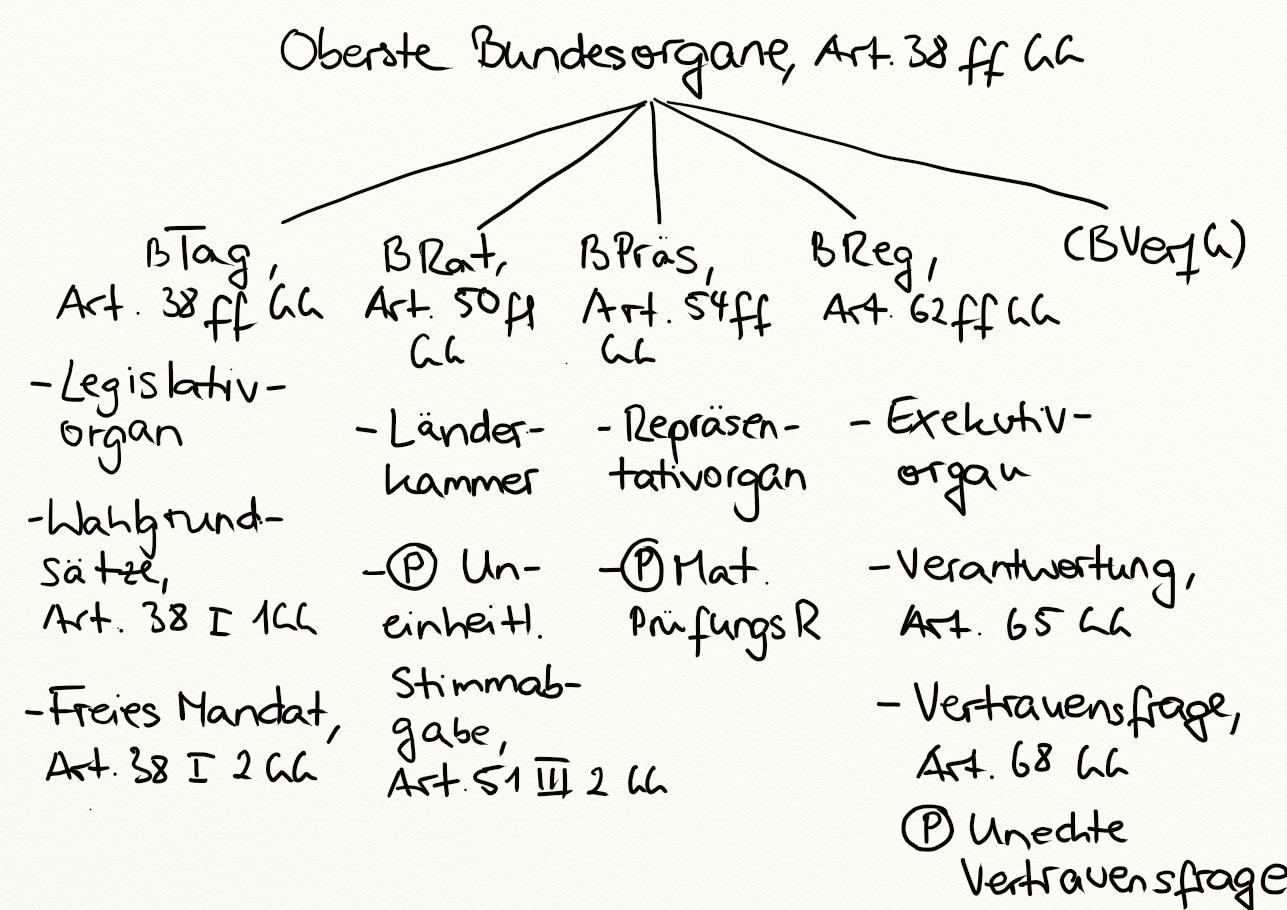 Oberste Bundesorgane, Art. 38 ff GG
BTag,
Art. 38 ff GG
-Legislativ-
organ
-Wahlgrund-
sätze,
Art. 38 I 1 GG
-Freies Mandat,
Art. 38 I 2 GG
BRat,
Art. 50 ff
GG
-Länder-
kammer
-(P) Un-
einheitl.
Stimmab-
gabe,
Art. 51 III 2 GG
BPräs,
Art. 54 ff
GG
-Repräsen-
tativorgan
-(P) Mat.
PrüfungsR
BReg,
Art. 62 ff GG
- Exekutiv-
organ
-Verantwortung,
Art. 65 GG
- Vertrauensfrage,
Art. 68 GG
(P) Unechte
Vertrauensfrage
(BVerfG)